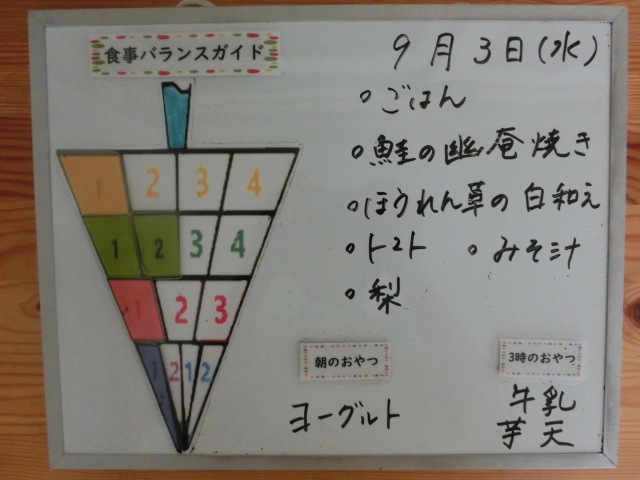 食事バランスガイド
9月3日(水)
・ごはん
・鮭の幽庵焼き
・ほうれん草の白和え
・トマト ・みそ汁
・梨
1 2 3 4
1 2 3 4
1 2 3
1 2 1 2
朝のおやつ
ヨーグルト
3時のおやつ
牛乳
芋天